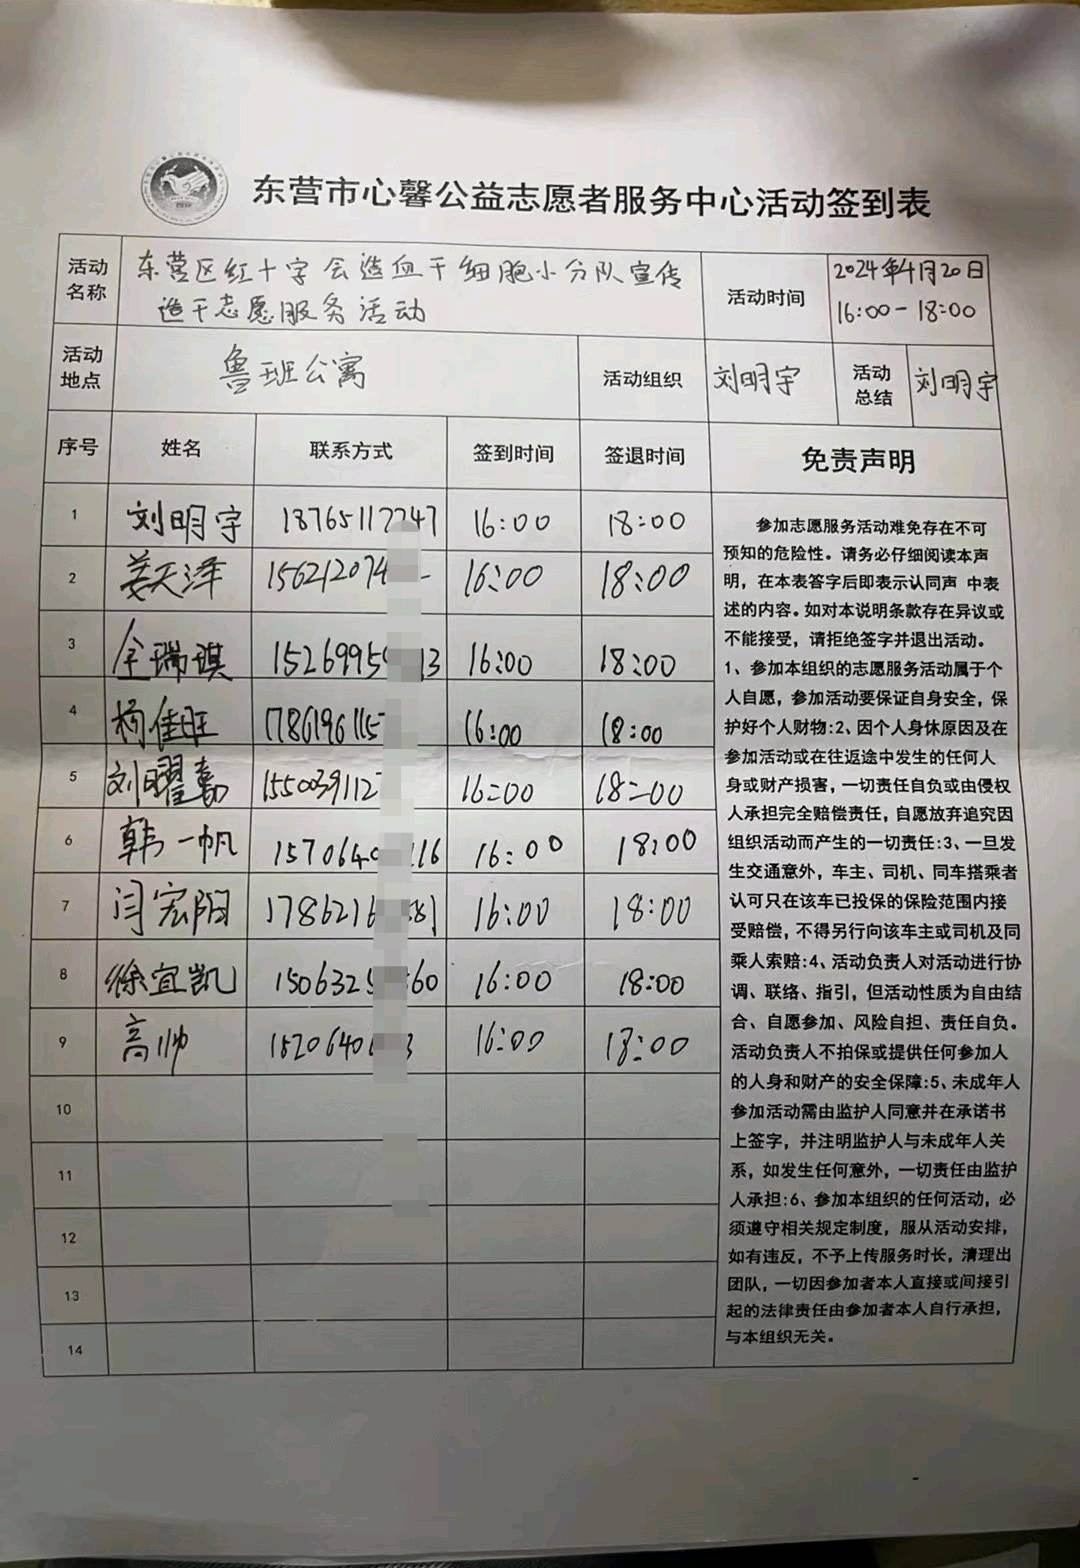 东营市心馨公益志愿者服务中心活动签到表
活动名称 东营区红十字会造血干细胞小分队宣传 活动时间 2024年4月20日
造干志愿服务活动 16:00-18:00
活动地点 鲁班公寓 活动组织 刘明宇 活动总结 刘明宇
序号 姓名 联系方式 签到时间 签退时间 免责声明
1 刘明宇 18765117747 16:00 18:00
2 姜天泽 156212074 16:00 18:00
3 全瑞祺 15269959 13 16:00 18:00
4 杨佳旺 1786196115 16:00 18:00
5 刘曜 1550039112 16:00 18:00
6 韩一帆 1570640 116 16:00 18:00
7 闫宏阳 1786216 81 16:00 18:00
8 徐宜凯 1506325 60 16:00 18:00
9 高帅 1520640 3 16:00 18:00
10
11
12
13
14
参加志愿服务活动难免存在不可
预知的危险性。请务必仔细阅读本声
明，在本表答字后即表示认同声 中表
述的内容。如对本说明条款存在异议或
不能接受，请拒绝签字并退出活动。
1、参加本组织的志愿服务活动属于个
人自愿，参加活动要保证自身安全，保
护好个人财物:2、因个人身休原因及在
参加活动或在往返途中发生的任何人
身或财产损害，一切责任自负或由侵权
人承担完全赔偿责任，自愿放弃追究因
组织活动而产生的一切责任:3、一旦发
生交通意外，车主、司机、同车搭乘者
认可只在该车已投保的保险范围内接
受赔偿，不得另行向该车主或司机及同
乘人索赔:4、活动负责人对活动进行协
调、联络、指引，但活动性质为自由结
合、自愿参加、风险自担、责任自负。
活动负责人不拍保或提供任何参加人
的人身和财产的安全保障:5、未成年人
参加活动需由监护人同意并在承诺书
上签字，并注明监护人与未成年人关
系，如发生任何意外，一切责任由监护
人承担:6、参加本组织的任何活动，必
须遵守相关规定制度，服从活动安排，
如有违反，不予上传服务时长，清理出
团队，一切因参加者本人直接或间接引
起的法律责任由参加者本人自行承担，
与本组织无关。